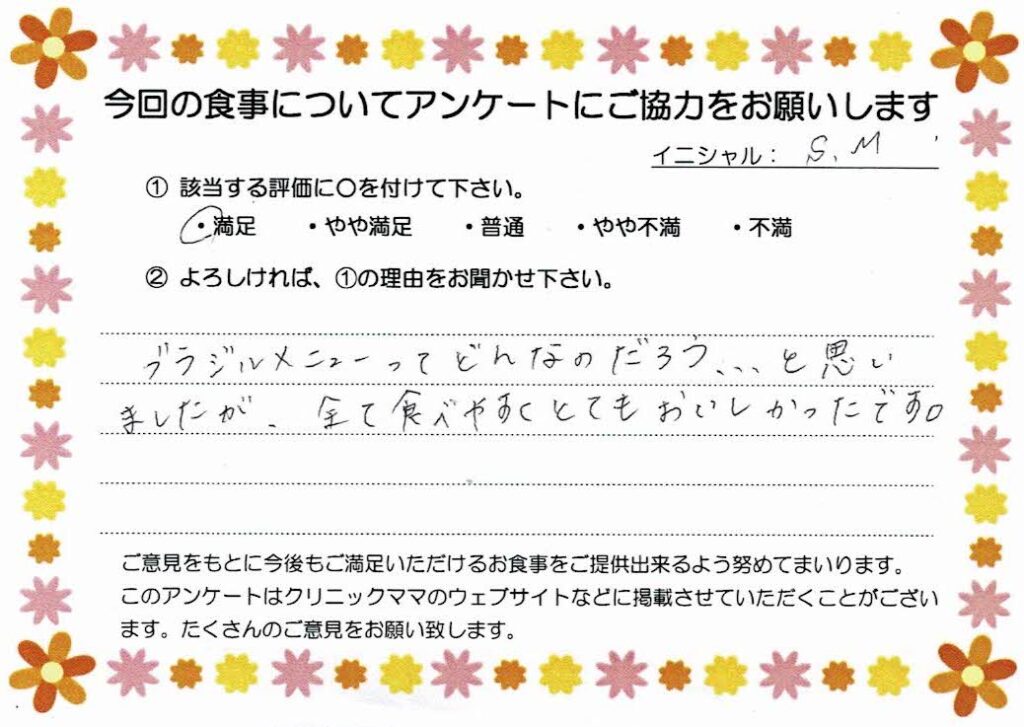 今回の食事についてアンケートにご協力をお願いします
イニシャル: S.M
① 該当する評価に○を付けて下さい。
・満足 ・やや満足 ・普通 ・やや不満 ・不満
② よろしければ、①の理由をお聞かせ下さい。
ブラジルメニューってどんなのだろう、、、と思い
ましたが、全て食べやすくとてもおいしかったです。
ご意見をもとに今後もご満足いただけるお食事をご提供出来るよう努めてまいります。
このアンケートはクリニックママのウェブサイトなどに掲載させていただくことがござい
ます。たくさんのご意見をお願い致します。